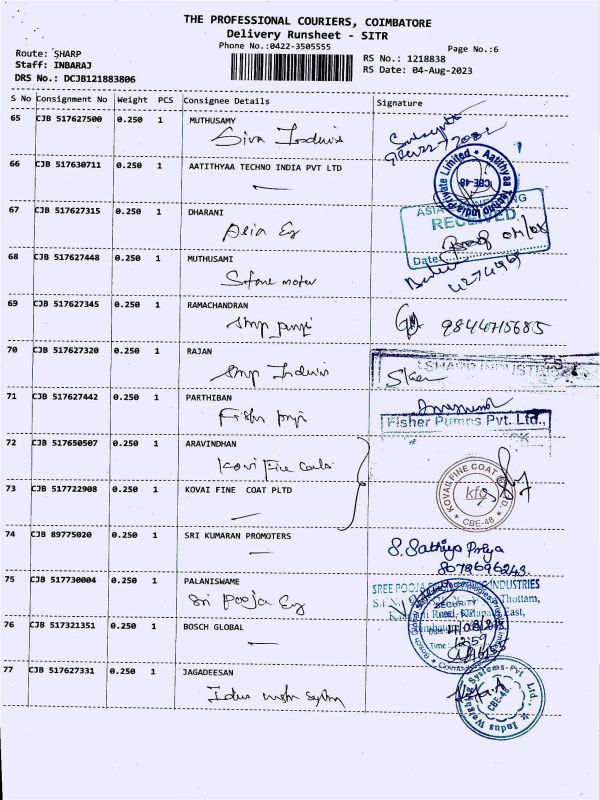 THE PROFESSIONAL COURIERS, COIMBATORE
Delivery Runsheet - SITR
Phone No.:0422-3505555
Page No.:6
Route: SHARP
Staff: INBARAJ
DRS No.: DCJB121883806
RS No.: 1218838
RS Date: 04-Aug-2023
S No Consignment No Weight PCS Consignee Details Signature
65 CJB 517627500 0.250 1 MUTHUSAMY
66 CJB 517630711 0.250 1 AATITHYAA TECHNO INDIA PVT LTD
Aatithyaa Techno India Private Limited
CBE-48
67 CJB 517627315 0.250 1 DHARANI
RECEIVED
Date
68 CJB 517627448 0.250 1 MUTHUSAMI
Stone motor
69 CJB 517627345 0.250 1 RAMACHANDRAN
9844715685
70 CJB 517627320 0.250 1 RAJAN
SHARP INDUSTRIES
71 CJB 517627442 0.250 1 PARTHIBAN
Fisher Pumps Pvt. Ltd.,
72 CJB 517650507 0.250 1 ARAVINDHAN
Kovai Fine Coats
73 CJB 517722908 0.250 1 KOVAI FINE COAT PLTD
KOVAI FINE COAT
kfc
CBE-48
74 CJB 89775020 0.250 1 SRI KUMARAN PROMOTERS
S. Sathiya Priya
8072696243
75 CJB 517730004 0.250 1 PALANISWAME
Sri Pooja Eg
SREE POOJA INDUSTRIES
Thottam,
East,
76 CJB 517321351 0.250 1 BOSCH GLOBAL
SECURITY
Time 12:59
77 CJB 517627331 0.250 1 JAGADEESAN
Indus Weighing Systems Pvt Ltd.,
CBE-48.